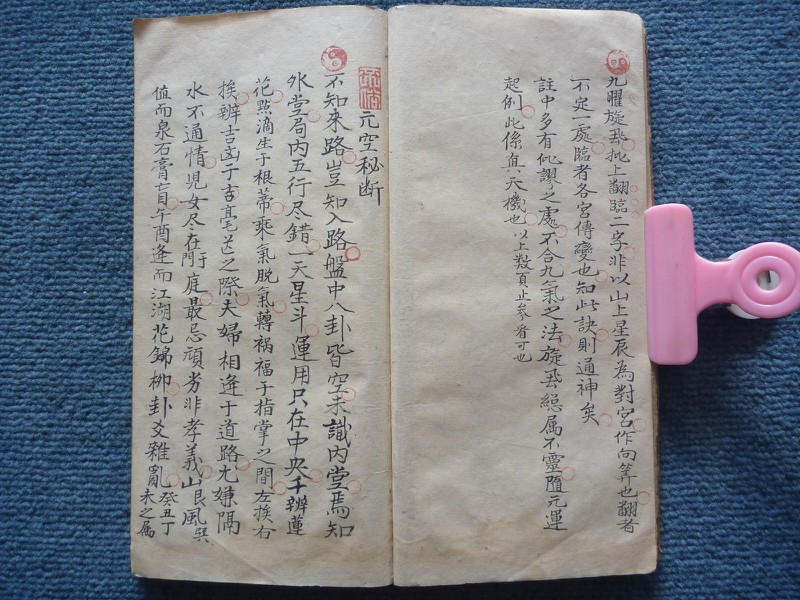 九曜旋飛挑上翻臨二字非以山上星辰為對宮作向筭也翻者
不定一處臨者各宮傳變也知此訣則通神矣
註中多有批謬之處不合九氣之法旋飛縂属不靈隨元運
起例此係真天機也以上数頁止参看可也
元空秘断
不知来路豈知入路盤中八卦皆空未識内堂焉知
外堂局内五行尽錯一天星斗運用只在中央千辦蓮
花㸃滴生于根蒂乘氣脱氣轉禍福于指掌之間左挨右
挨辨吉凶于吉毫芒之際夫婦相逢于道路尤嫌隔
水不通情児女尽在于門庭最忌頑劣非孝義山艮風巽
值而泉石膏盲午酉逢而江湖花錦柳卦爻雜亂癸丑丁
未之属